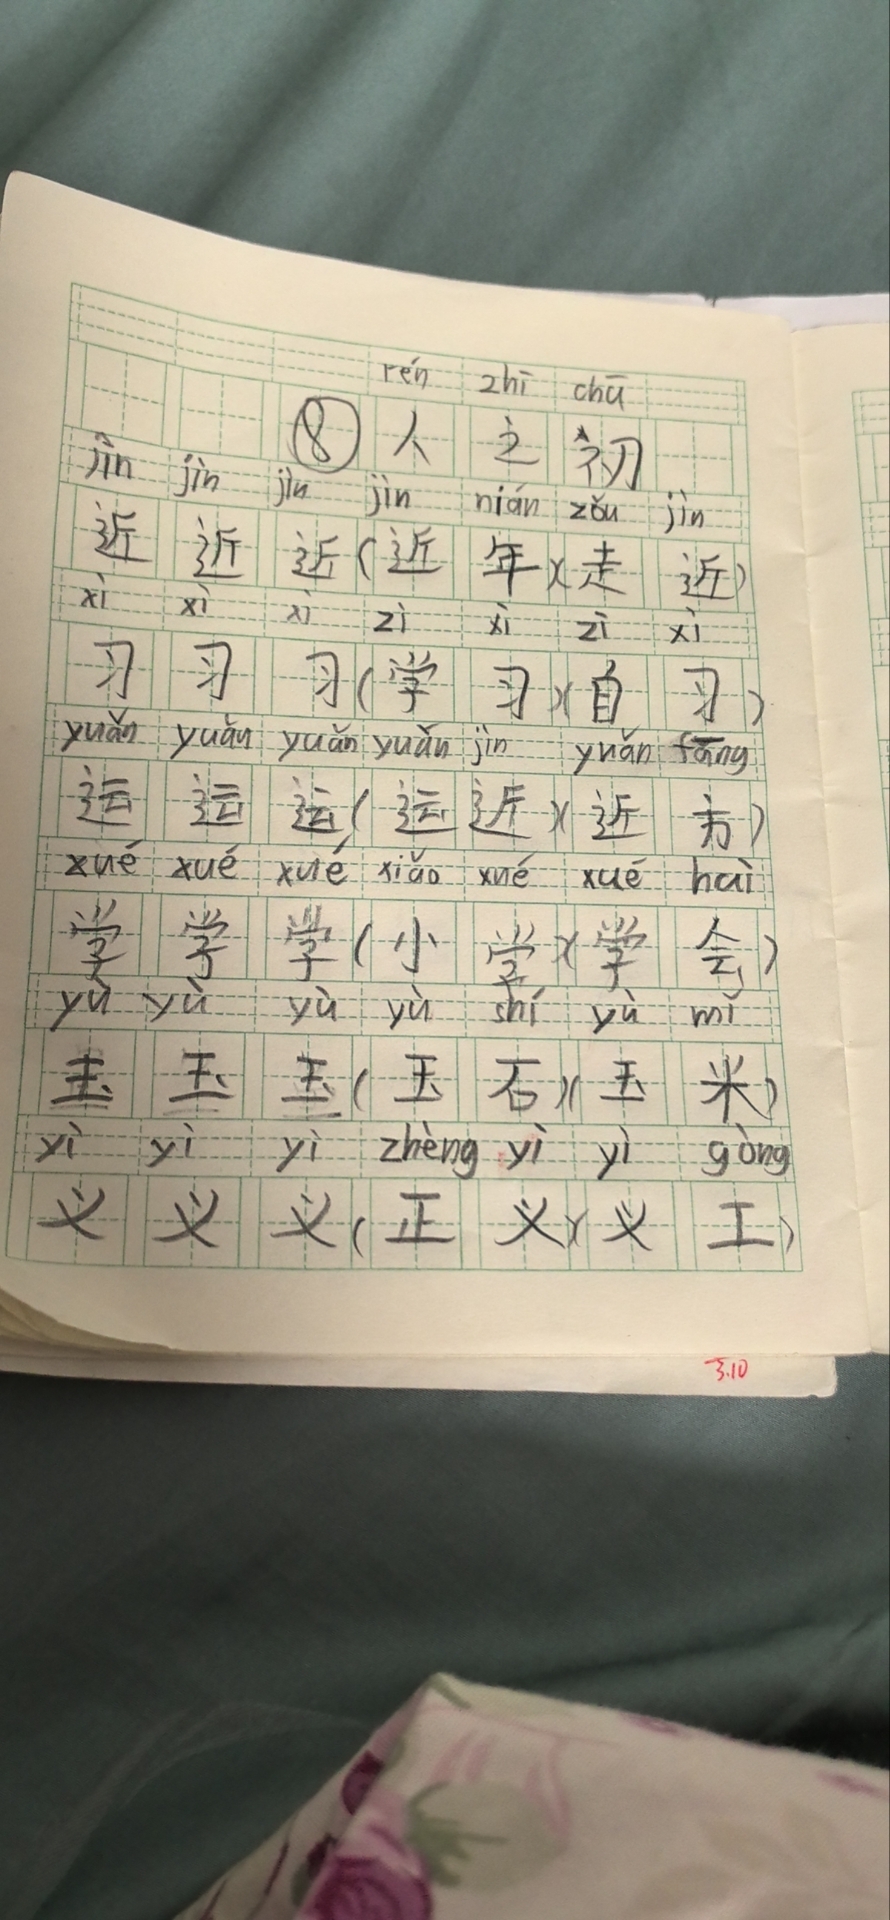 rén zhī chū
⑧ 人 之 初
jìn jìn jìn jìn nián zǒu jìn
近 近 近 ( 近 年 )( 走 近 )
xì xì xì zì xì zì xì
习 习 习 ( 学 习 )( 自 习 )
yuǎn yuǎn yuǎn yuǎn jìn yuǎn fāng
运 运 运 ( 运 近 )( 近 方 )
xué xué xué xiǎo xué xué haì
学 学 学 ( 小 学 )( 学 会 )
yù yù yù yù shí yù mǐ
玉 玉 玉 ( 玉 石 )( 玉 米 )
yì yì yì zhèng yì yì gòng
义 义 义 ( 正 义 )( 义 工 )
3.10